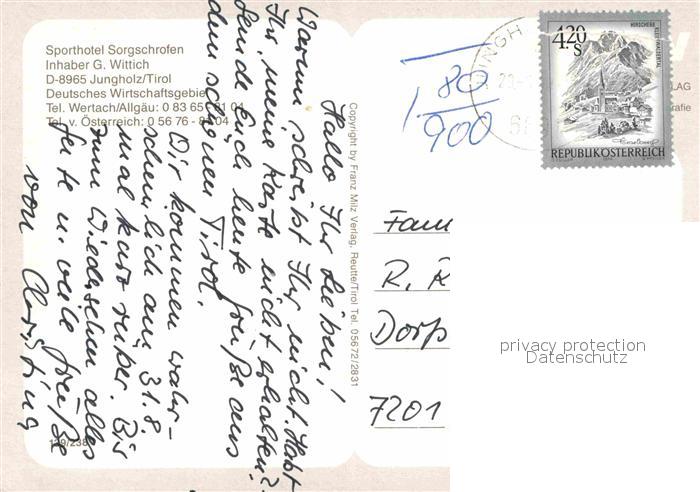 Sporthotel Sorgschrofen
Inhaber G. Wittich
D-8965 Jungholz/Tirol
Deutsches Wirtschaftsgebiet
Tel. Wertach/Allgäu: 0 83 65/81 04
Tel. v. Österreich: 0 56 76 - 81 04
Hallo Ihr Lieben!
Warum schreibt Ihr nicht. Habt
Ihr meine Karte nicht erhalten?
Sende Euch heute Grüße aus
dem schönen Tirol.
Wir kommen wahr-
scheinlich am 31.8.
mal kurz rüber. Bis
zum Wiedersehen alles
Gute u. viele Grüße
von Christina
Copyright by Franz Milz Verlag, Reutte/Tirol Tel. 05672/2831
180
900
4.20
S
HIRSCHEGG
REPUBLIK ÖSTERREICH
LAG
Fam
R. K
Dorf
7201
privacy protection
Datenschutz